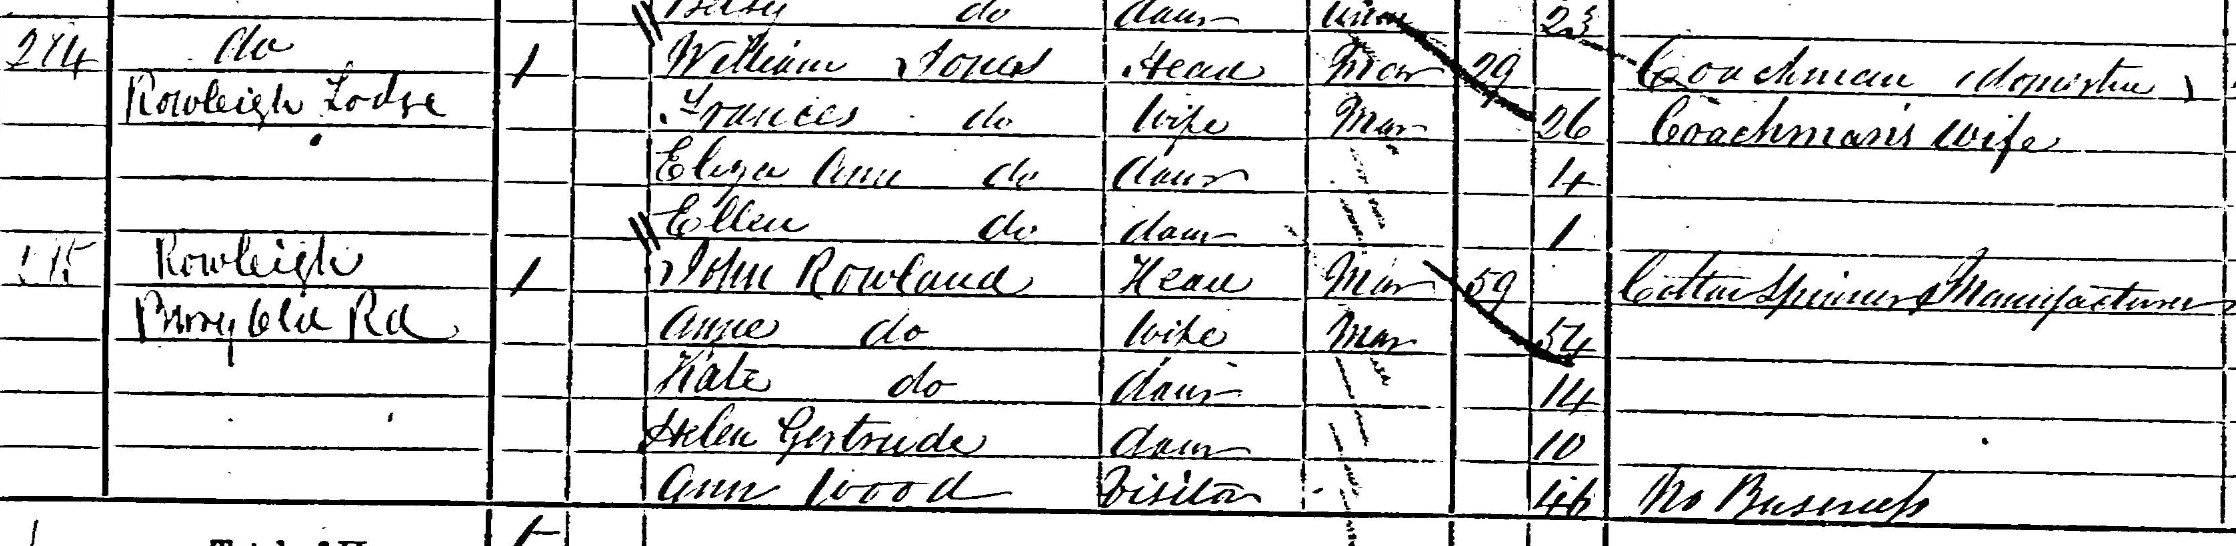 Betsy do daur Unm 23
274 do 1 William Jones Head Mar 29 Coachman (domestic)
Rowleigh Lodge Frances do wife Mar 26 Coachman's wife
Eliza Ann do daur 4
Ellen do daur 1
275 Rowleigh 1 John Rowland Head Mar 59 Cotton Spinner & Manufacturer
Rd Anne do wife Mar 54
Kate do daur 14
Helen Gertrude daur 10
Ann Wood Visitor 46 No Business